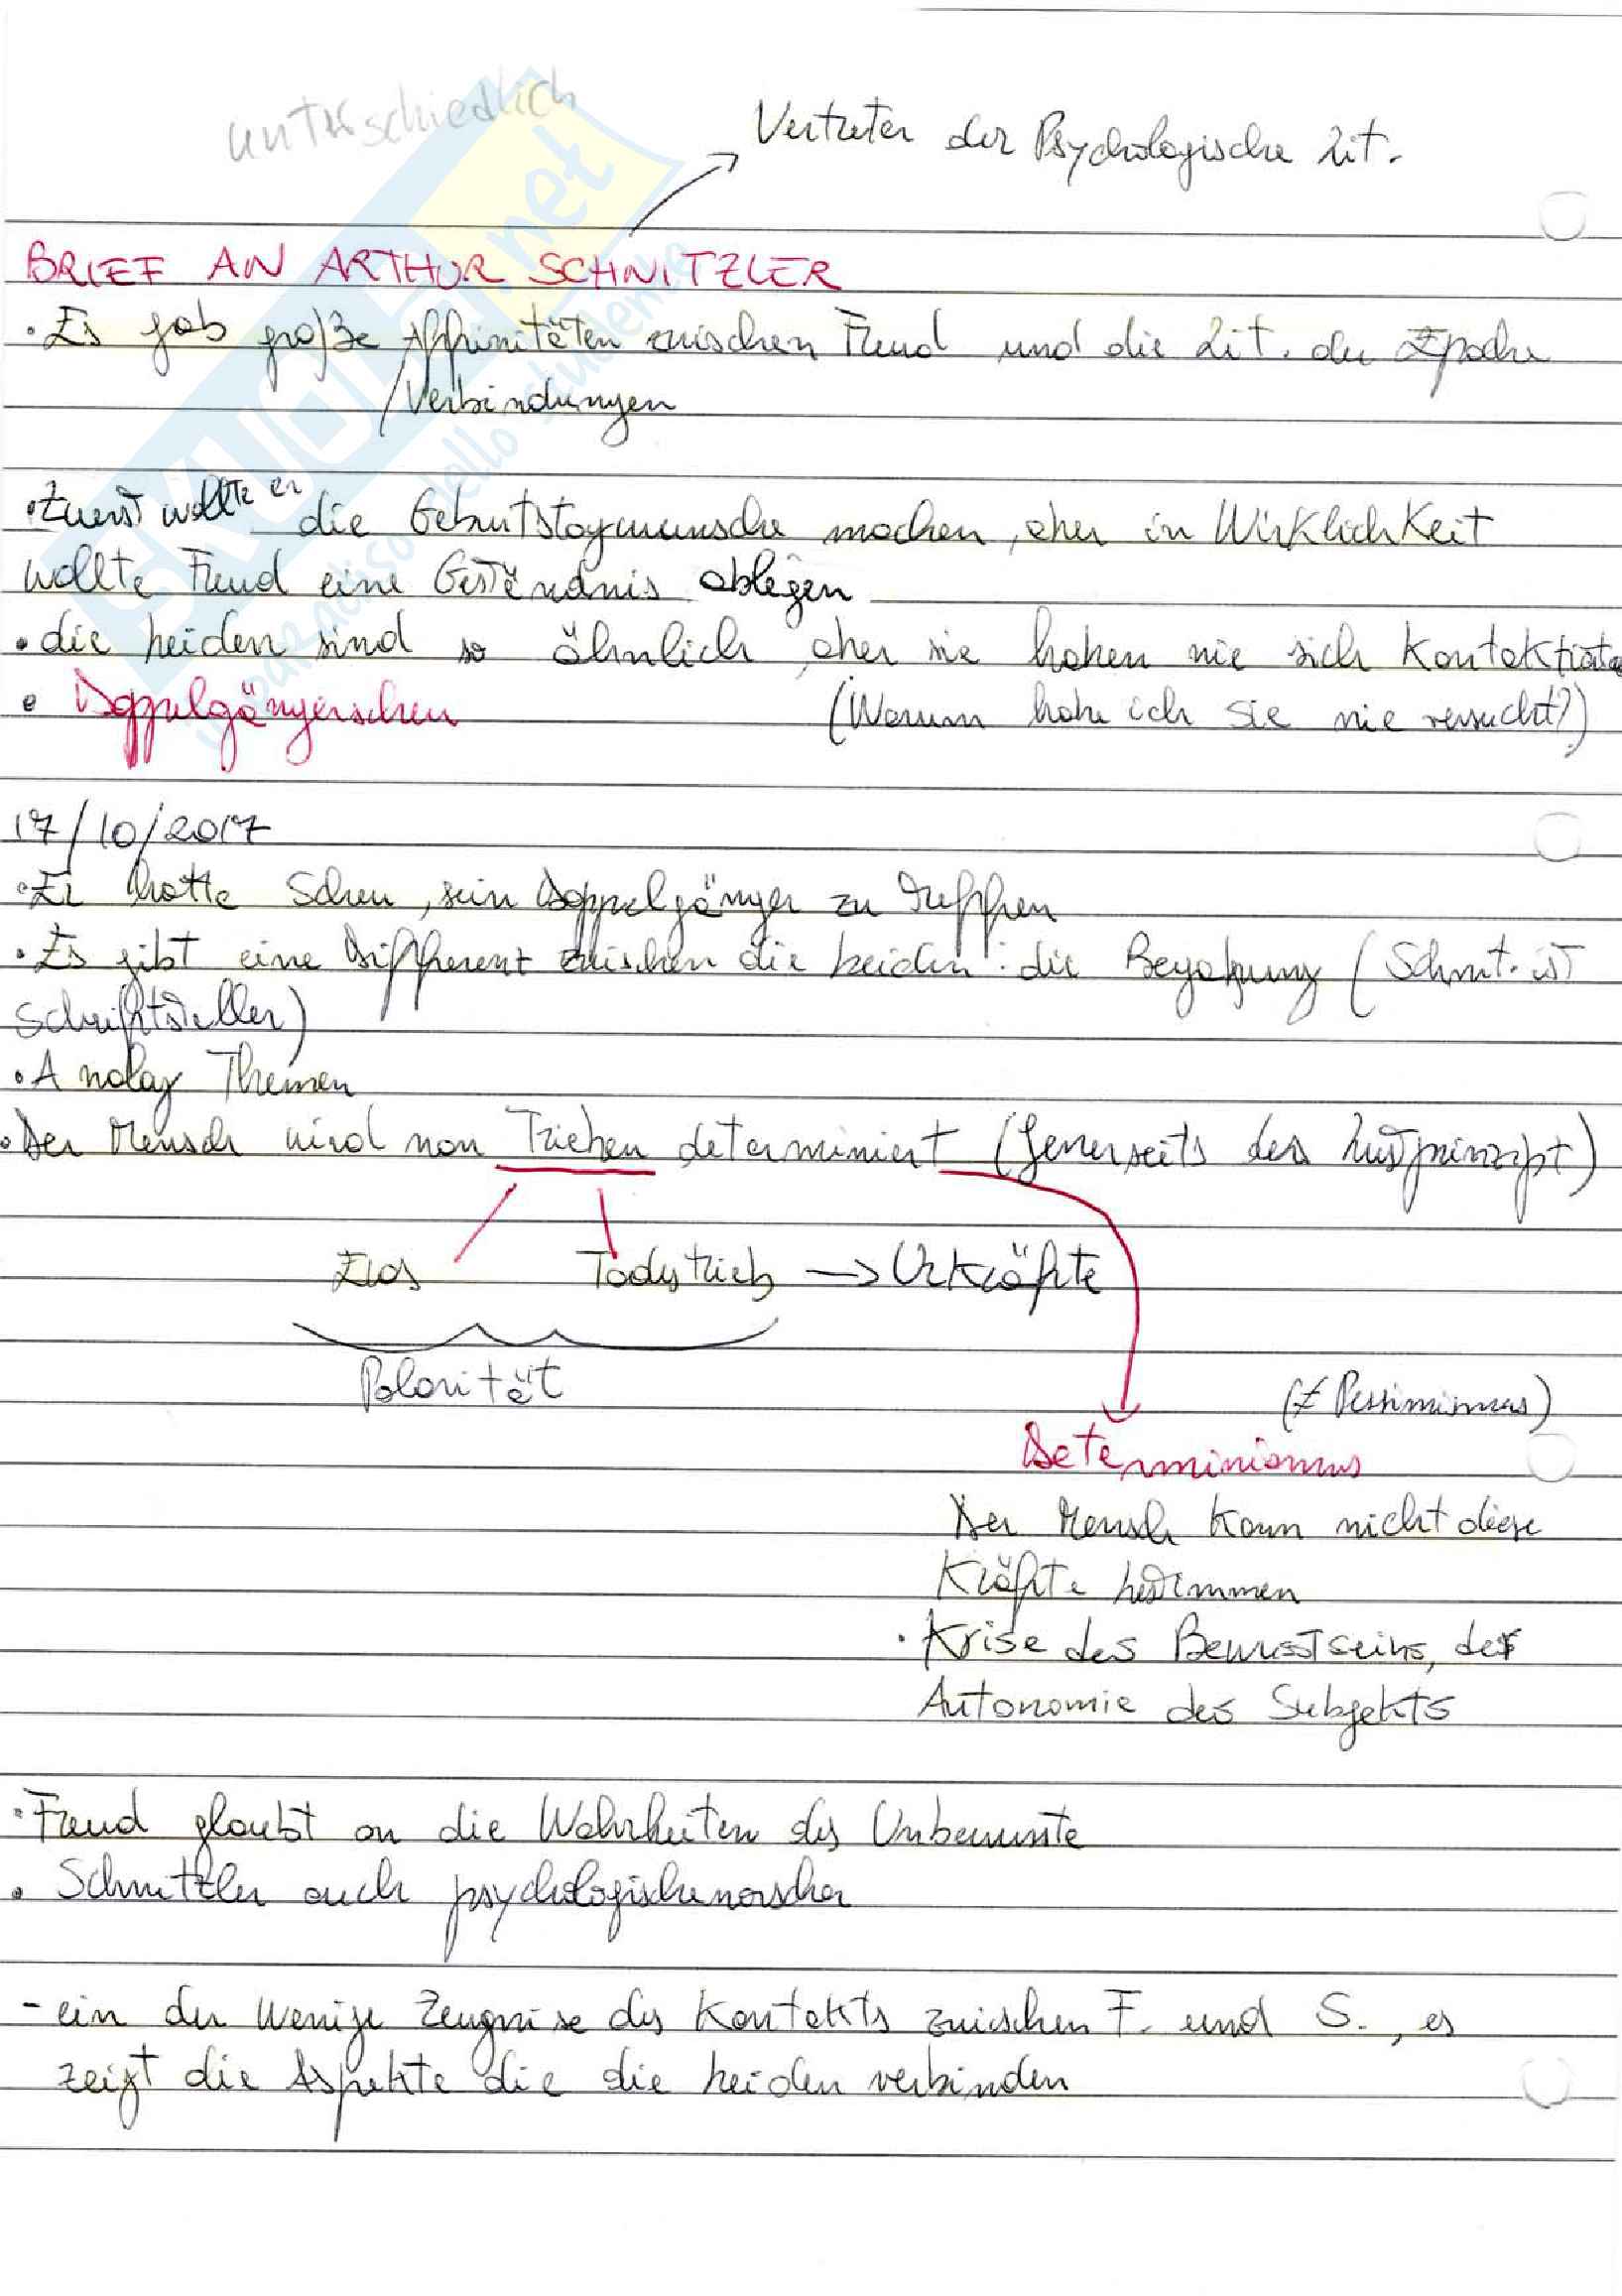 unterschiedlich
Vertreter der Psychologische Lit.
BRIEF AN ARTHUR SCHNITZLER
• Es gab große Affinitäten zwischen Freud und die Lit. der Epoche
/Verbindungen
• Zuerst wollte er die Geburtstagwunsche machen, aber in Wirklichkeit
wollte Freud eine Geständnis ablegen
• die beiden sind so ähnlich, aber sie haben nie sich
• Doppelgängerscheu (Warum habe ich Sie nie versucht?)
17/10/2017
• Er hatte Scheu, sein Doppelgänger zu treffen
• Es gibt eine Different zwischen die beiden: die Begabung (Schnit. ist
Schriftsteller)
• Analog Themen
• Der Mensch wird von Trieben determiniert (Jenerseits des Lustprinzipt)
Eros Todstrieb -> Urkräfte
Polarität
(≠ Pessimismus)
Determinismus
Der Mensch kann nicht diese
Kräfte bestimmen
• Krise des Bewusstseins, der
Autonomie des Subjekts
• Freud glaubt an die Wahrheiten des Unbewusste
• Schnitzler auch
- ein der wenige Zeugnise des Kontakts zwischen F. und S., es
zeigt die Aspekte die die beiden verbinden
SKUOLA.net
il paradiso dello studente